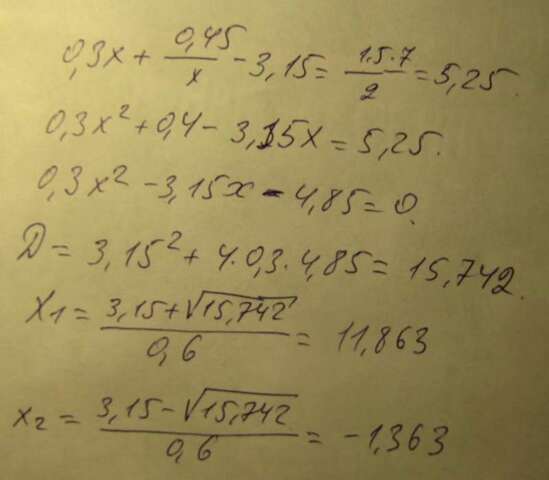 0,3x + 0,45/x - 3,15 = 1.5·7/2 = 5,25.
0,3x² + 0,4 - 3,15x = 5,25.
0,3x² - 3,15x - 4,85 = 0.
D = 3,15² + 4·0,3·4,85 = 15,742.
X₁ = 3,15+√15,742/0,6 = 11,863
x₂ = 3,15-√15,742/0,6 = -1,363